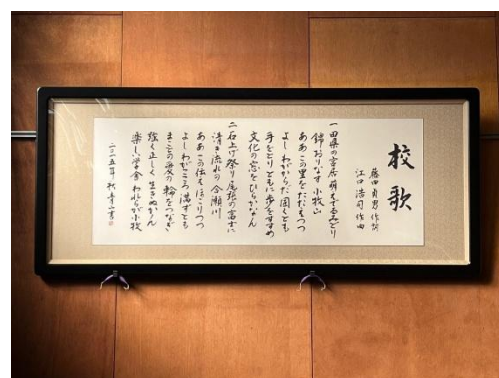 校歌
藤田貞男 作詞
江口浩司 作曲
一 田県の宮居萌えてみどり
錦おりなす 小牧山
ああこの里をたたえつつ
よしわがからだ 固くとも
手をとりともに歩をすすめ
文化の窓をひらかなん
二 石上げ祭り 尾張の富士に
清き流れの 合瀬川
ああこの伝えほこりつつ
よしわがこころ 満ずとも
まことの友の 輪をつなぎ
強く正しく 生きぬかん
楽し学舎 われらが小牧
二〇一五年 秋 青山書